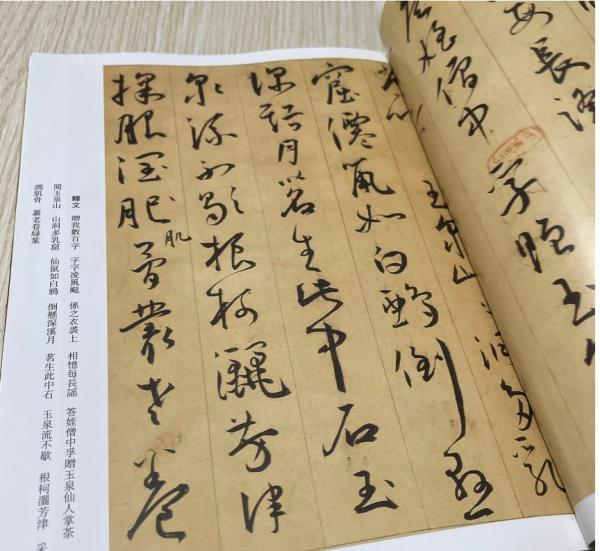 每長謠
答姪僧中孚贈玉
玉泉山山洞多乳
窟僊鼠如白鵶倒懸
深谿月茗生此中石玉
泉流不歇根柯灑芳津
採服潤肥骨叢老卷
肌
釋文 贈我數百字 字字凌風飈 係之衣裘上 相憶每長謠 答姪僧中孚贈玉泉仙人掌茶
聞玉泉山 山洞多乳窟 仙鼠如白鴉 倒懸深溪月 茗生此中石 玉泉流不歇 根柯灑芳津 采
潤肌骨 叢老卷綠葉